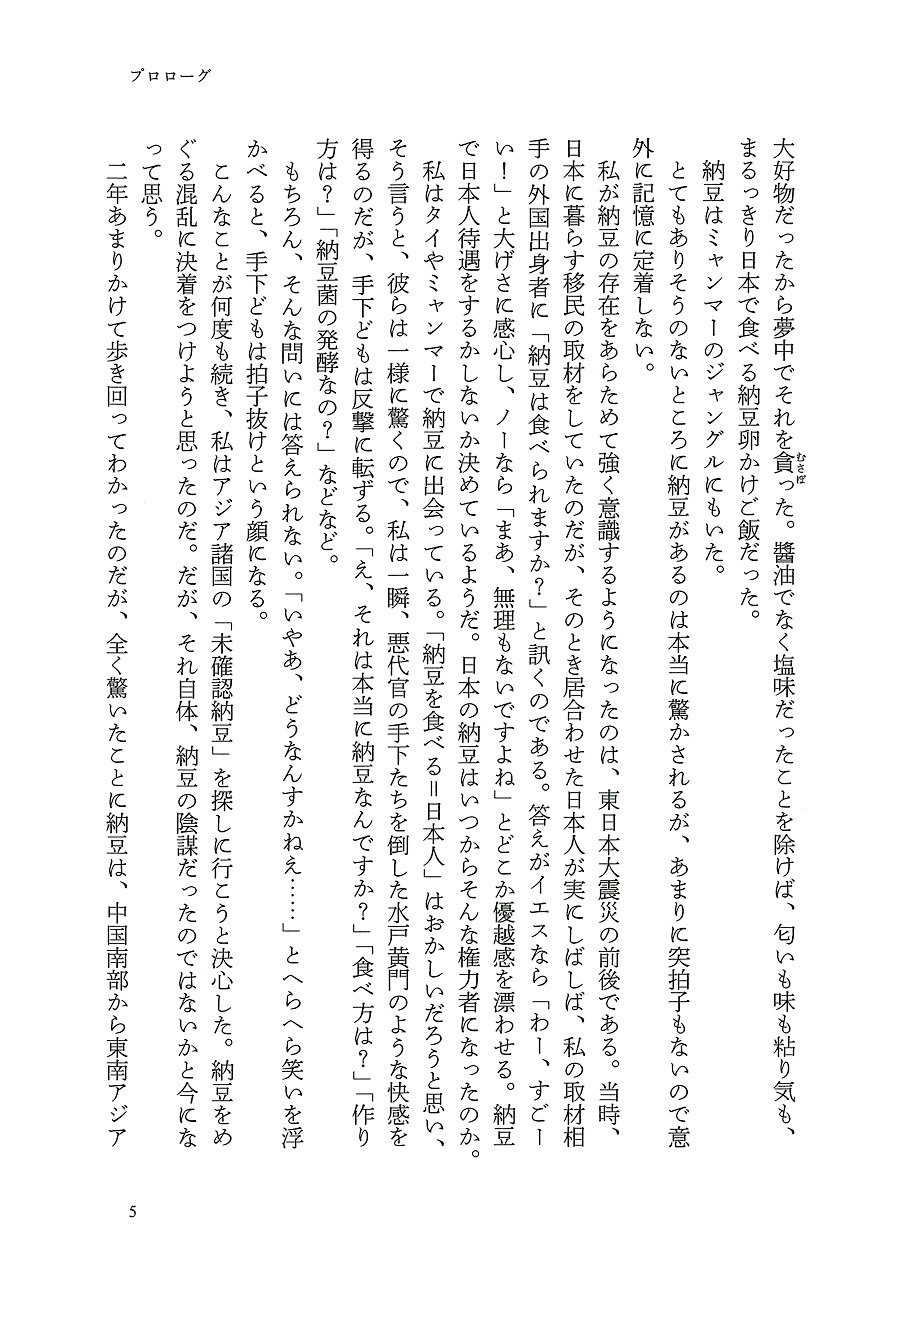 プロローグ
大好物だったから夢中でそれを貪った。醬油でなく塩味だったことを除けば、匂いも味も粘り気も、
むさぼ
まるっきり日本で食べる納豆卵かけご飯だった。
納豆はミャンマーのジャングルにもいた。
とてもありそうのないところに納豆があるのは本当に驚かされるが、あまりに突拍子もないので意
外に記憶に定着しない。
私が納豆の存在をあらためて強く意識するようになったのは、東日本大震災の前後である。当時、
日本に暮らす移民の取材をしていたのだが、そのとき居合わせた日本人が実にしばしば、私の取材相
手の外国出身者に「納豆は食べられますか？」と訊くのである。答えがイエスなら「わー、すごー
い！」と大げさに感心し、ノーなら「まあ、無理もないですよね」とどこか優越感を漂わせる。納豆
で日本人待遇をするかしないか決めているようだ。日本の納豆はいつからそんな権力者になったのか。
私はタイやミャンマーで納豆に出会っている。「納豆を食べる＝日本人」はおかしいだろうと思い、
そう言うと、彼らは一様に驚くので、私は一瞬、悪代官の手下たちを倒した水戸黄門のような快感を
得るのだが、手下どもは反撃に転ずる。「え、それは本当に納豆なんですか？」「食べ方は？」「作り
方は？」「納豆菌の発酵なの？」などなど。
もちろん、そんな問いには答えられない。「いやあ、どうなんすかねえ……」とへらへら笑いを浮
かべると、手下どもは拍子抜けという顔になる。
こんなことが何度も続き、私はアジア諸国の「未確認納豆」を探しに行こうと決心した。納豆をめ
ぐる混乱に決着をつけようと思ったのだ。だが、それ自体、納豆の陰謀だったのではないかと今にな
って思う。
二年あまりかけて歩き回ってわかったのだが、全く驚いたことに納豆は、中国南部から東南アジア
5